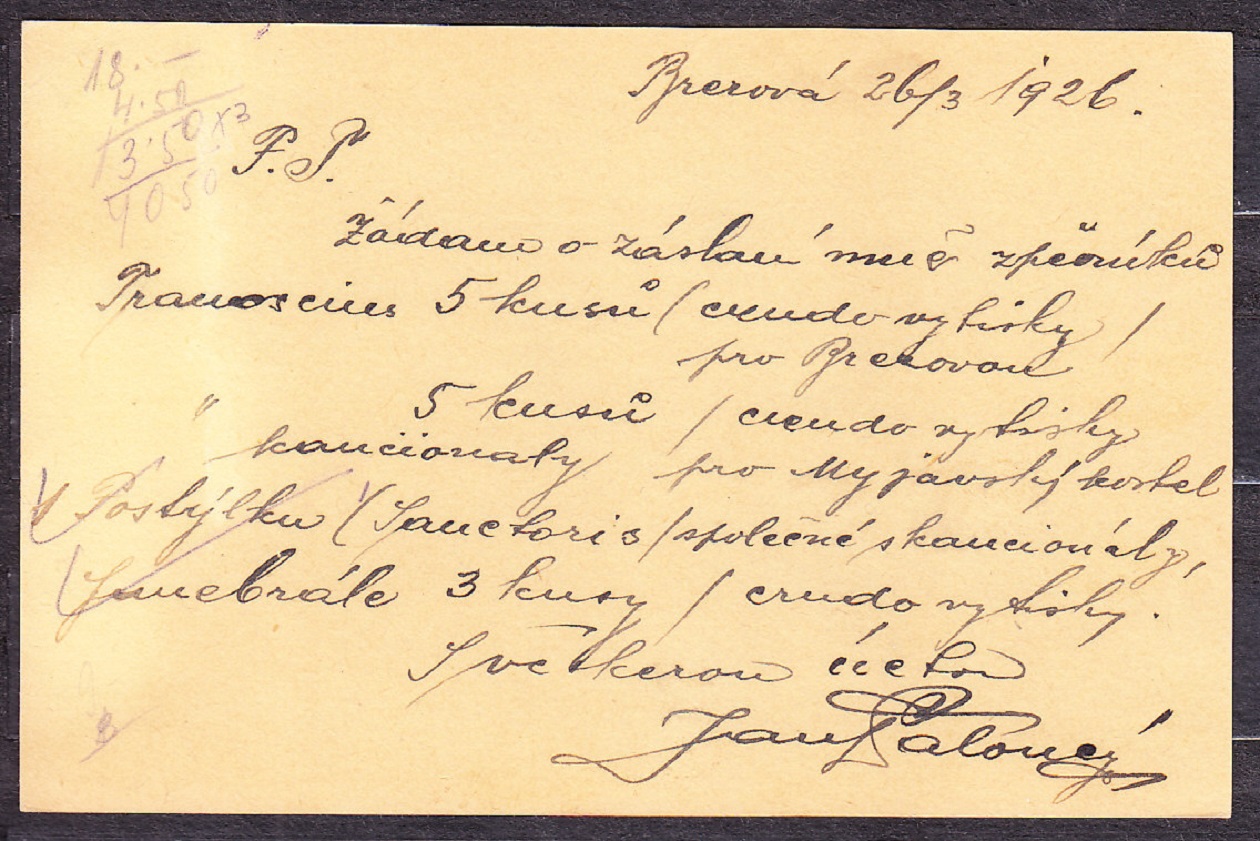 18.—
4.50
3.50 x3
10 50
Brezová 26/3 1926.
P. P.
Žádam o záslaní mně zpěvníků
Tranoscius 5 kusů / crudo vytisky /
pro Brezovou
" 5 kusů / crudo vytisky
kancionaly pro Myjavský kostel
Postýlku / Sanctoris / společné s kancionály,
Funebrále 3 kusy / crudo vytisky.
S veškerou úctou
Jan